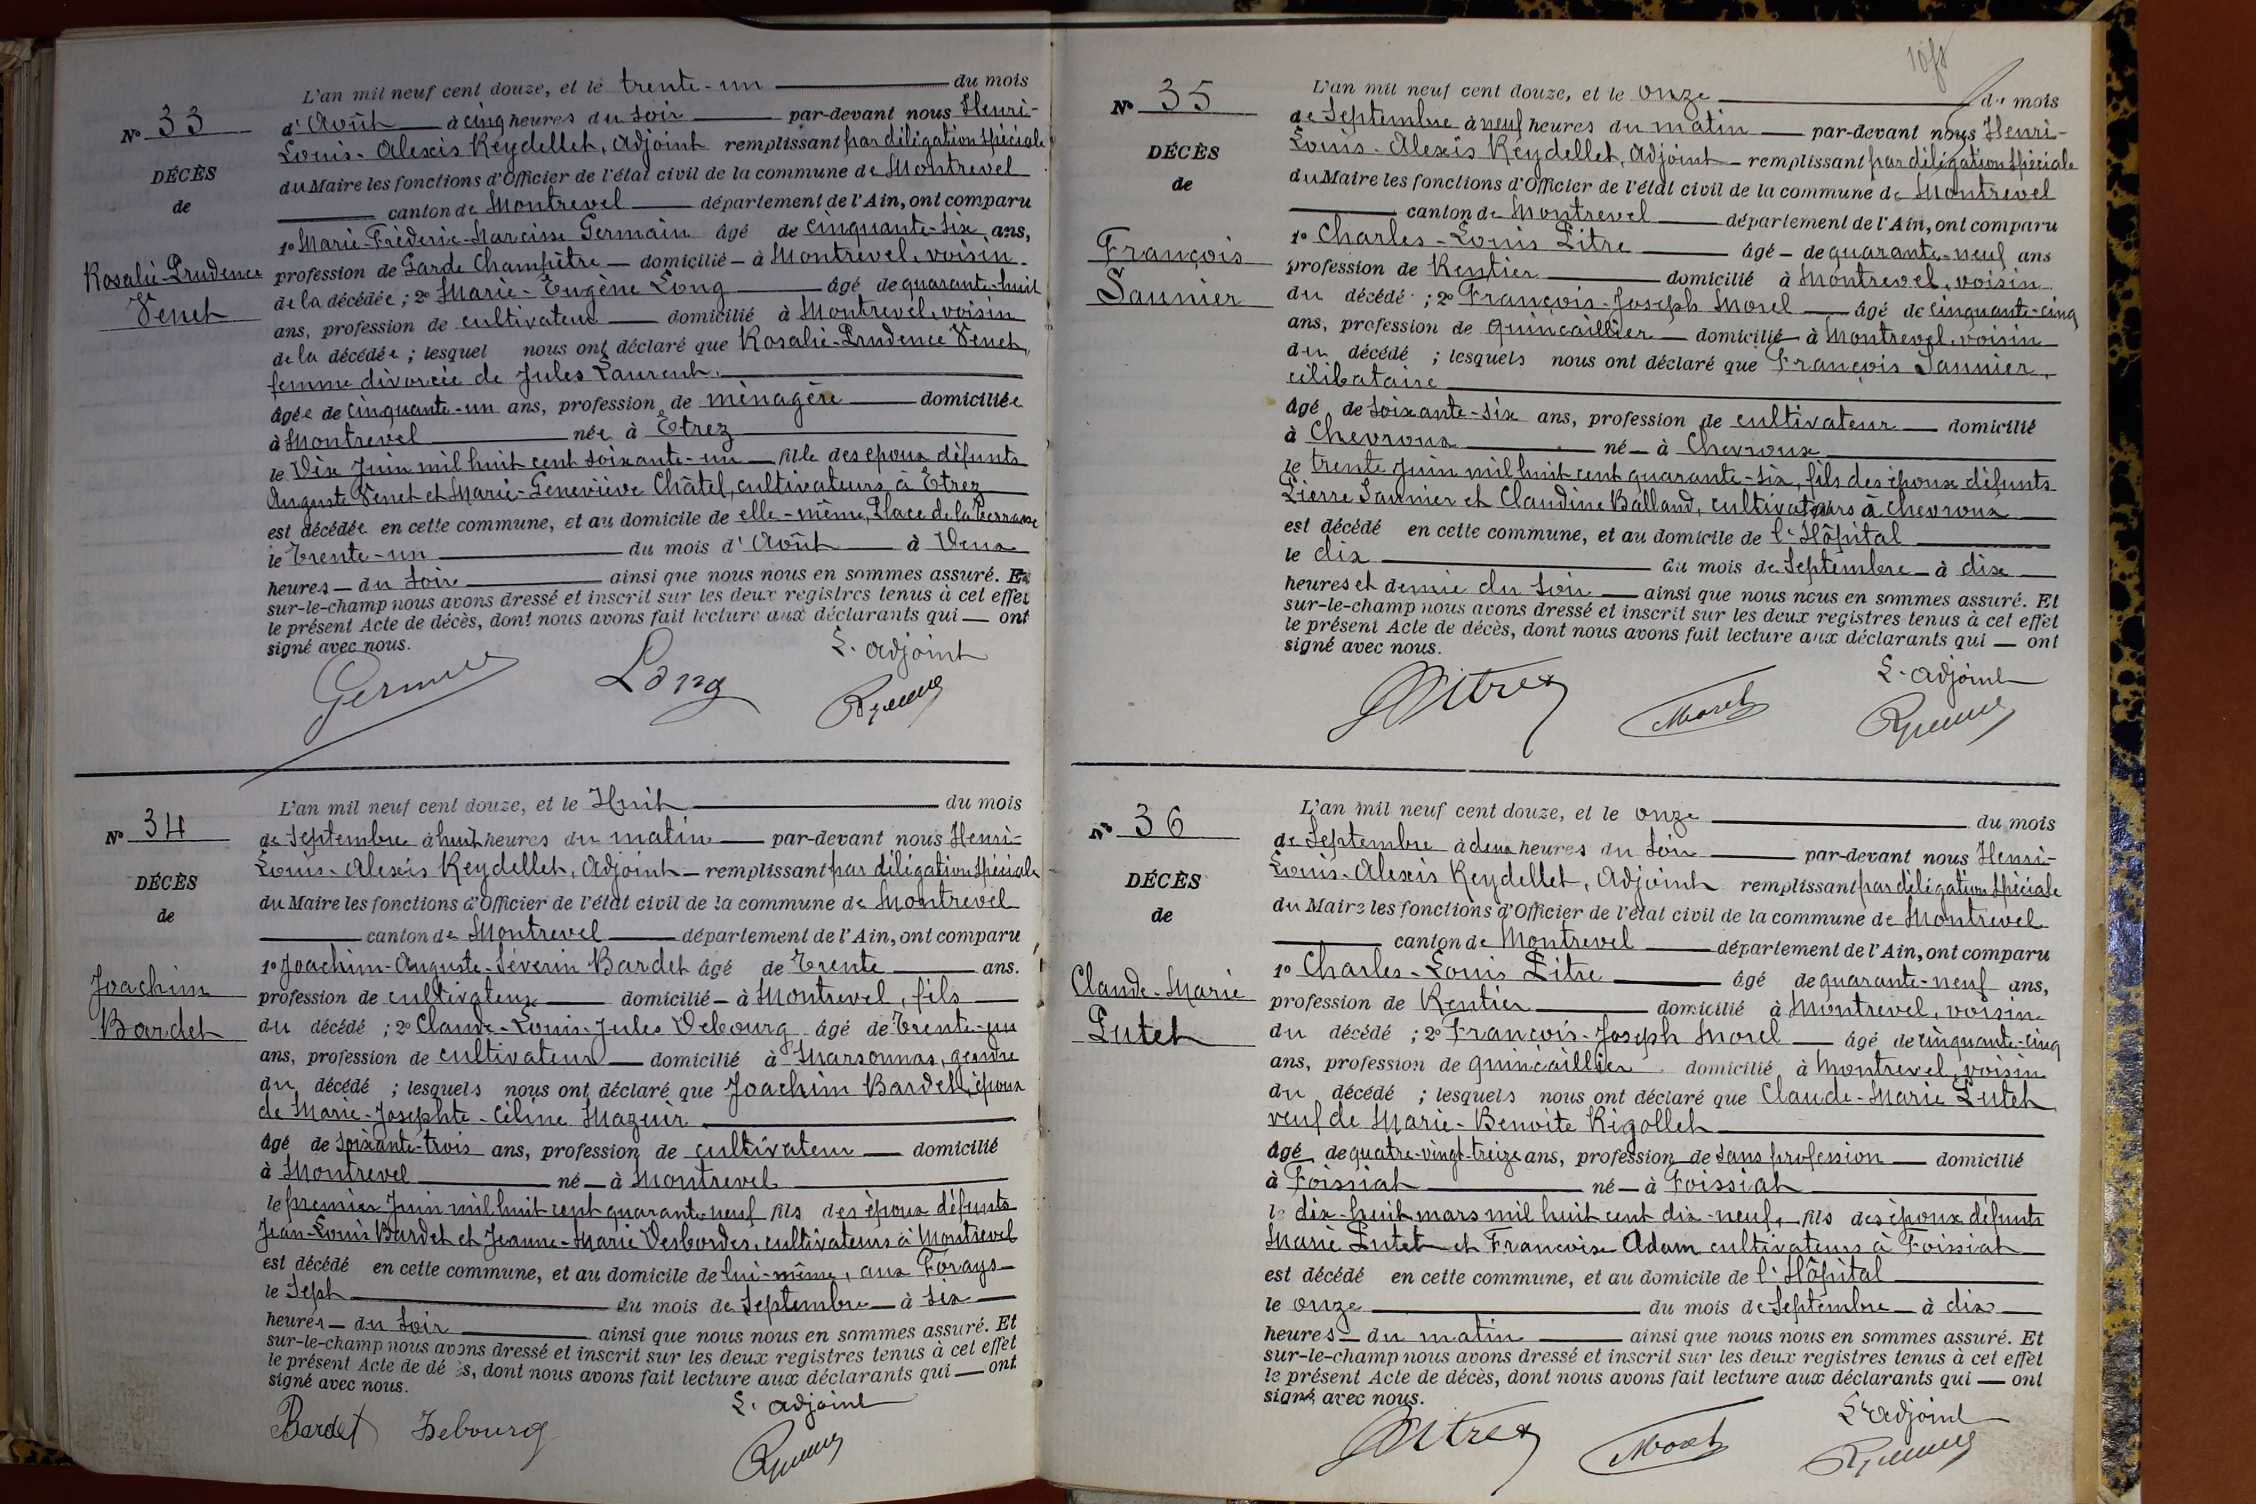 N° 33
DÉCÈS
de
Rosalie-Prudence
Venet
L'an mil neuf cent douze, et le trente-un du mois
d'Août à cinq heures du soir par-devant nous Henri-
Louis-Alexis Reydellet, Adjoint remplissant par délégation spéciale
du Maire les fonctions d'Officier de l'état civil de la commune de Montrevel
canton de Montrevel département de l'Ain, ont comparu
1° Marie-Fréderic-Narcisse Germain âgé de cinquante-six ans,
profession de Garde Champêtre domicilié à Montrevel, voisin
de la décédée ; 2° Marie-Eugène Long âgé de quarante-huit
ans, profession de cultivateur domicilié à Montrevel, voisin
de la décédée ; lesquel nous ont déclaré que Rosalie-Prudence Venet,
femme divorcée de Jules Laurent.
âgée de cinquante-un ans, profession de ménagère domiciliée
à Montrevel née à Etrez
le Dix Juin mil huit cent soixante-un fille des époux défunts
Auguste Venet et Marie-Geneviève Châtel, cultivateurs à Etrez
est décédée en cette commune, et au domicile de elle-même, Place de la Terrasse
le Trente-un du mois d'Août à Deux
heures du soir ainsi que nous nous en sommes assuré. Et
sur-le-champ nous avons dressé et inscrit sur les deux registres tenus à cet effet
le présent Acte de décès, dont nous avons fait lecture aux déclarants qui ont
signé avec nous.
L'adjoint
Germain Long
N° 34
DÉCÈS
de
Joachim
Bardet
L'an mil neuf cent douze, et le Huit du mois
de Septembre à huit heures du matin par-devant nous Henri-
Louis-Alexis Reydellet, Adjoint remplissant par délégation spéciale
du Maire les fonctions d'Officier de l'état civil de la commune de Montrevel
canton de Montrevel département de l'Ain, ont comparu
1° Joachim-Auguste-Séverin Bardet âgé de Trente ans.
profession de cultivateur domicilié à Montrevel, fils
du décédé ; 2° Claude-Louis-Jules Debourg âgé de Trente-un
ans, profession de cultivateur domicilié à Marsonnas, gendre
du décédé ; lesquels nous ont déclaré que Joachim Bardet, époux
de Marie-Josephte-Céline Mazuir
âgé de soixante-trois ans, profession de cultivateur domicilié
à Montrevel né à Montrevel
le premier Juin mil huit cent quarante neuf fils des époux défunts
Jean-Louis Bardet et Jeanne-Marie Desbordes, cultivateurs à Montrevel
est décédé en cette commune, et au domicile de lui-même, aux Forays
le Sept du mois de Septembre à six
heures du soir ainsi que nous nous en sommes assuré. Et
sur-le-champ nous avons dressé et inscrit sur les deux registres tenus à cet effet
le présent Acte de décès, dont nous avons fait lecture aux déclarants qui ont
signé avec nous.
L'adjoint
Bardet Debourg
N° 35
DÉCÈS
de
François
Saunier
L'an mil neuf cent douze, et le onze du mois
de Septembre à neuf heures du matin par-devant nous Henri-
Louis-Alexis Reydellet, Adjoint remplissant par délégation spéciale
du Maire les fonctions d'Officier de l'état civil de la commune de Montrevel
canton de Montrevel département de l'Ain, ont comparu
1° Charles-Louis Pitre âgé de quarante-neuf ans
profession de Rentier domicilié à Montrevel, voisin
du décédé ; 2° François-Joseph Morel âgé de cinquante-cinq
ans, profession de quincaillier domicilié à Montrevel, voisin
du décédé ; lesquels nous ont déclaré que François Saunier,
célibataire
âgé de soixante-six ans, profession de cultivateur domicilié
à Chevroux né à Chevroux
le trente Juin mil huit cent quarante-six, fils des époux défunts
Pierre Saunier et Claudine Balland, cultivateurs à Chevroux
est décédé en cette commune, et au domicile de l'Hôpital
le dix du mois de Septembre à dix
heures et demie du soir ainsi que nous nous en sommes assuré. Et
sur-le-champ nous avons dressé et inscrit sur les deux registres tenus à cet effet
le présent Acte de décès, dont nous avons fait lecture aux déclarants qui ont
signé avec nous.
L'adjoint
Morel
N° 36
DÉCÈS
de
Claude-Marie
Putet
L'an mil neuf cent douze, et le onze du mois
de Septembre à deux heures du soir par-devant nous Henri-
Louis-Alexis Reydellet, Adjoint remplissant par délégation spéciale
du Maire les fonctions d'Officier de l'état civil de la commune de Montrevel
canton de Montrevel département de l'Ain, ont comparu
1° Charles-Louis Pitre âgé de quarante-neuf ans,
profession de Rentier domicilié à Montrevel, voisin
du décédé ; 2° François-Joseph Morel âgé de cinquante-cinq
ans, profession de quincaillier domicilié à Montrevel, voisin
du décédé ; lesquels nous ont déclaré que Claude-Marie Putet
veuf de Marie-Benoite Rigollet
âgé de quatre-vingt-treize ans, profession de sans profession domicilié
à Foissiat né à Foissiat
le dix-huit mars mil huit cent dix-neuf, fils des époux défunts
Marie Putet et Francoise Adam cultivateurs à Foissiat
est décédé en cette commune, et au domicile de l'Hôpital
le onze du mois de Septembre à dix
heures du matin ainsi que nous nous en sommes assuré. Et
sur-le-champ nous avons dressé et inscrit sur les deux registres tenus à cet effet
le présent Acte de décès, dont nous avons fait lecture aux déclarants qui ont
signé avec nous.
L'adjoint
Morel